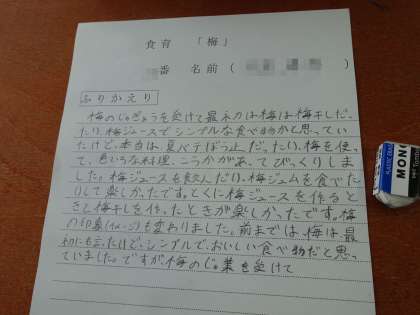 食育 「梅」
番 名前（ ）
ふりかえり
梅のじゅぎょうを受けて最初は梅は梅干しだっ
たり、梅ジュースでシンプルな食べ物かと思ってい
たけど、本当は、夏バテぼう止だったり、梅を使っ
て、色いろな料理、こうかがあってびっくりしま
した。梅ジュースを飲んだり、梅ジャムを食べた
りして楽しかったです。とくに梅ジュースを作ると
きと梅干しを作ったときが楽しかったです。梅
の印象(イメージ)も変わりました。前までは、梅は最
初にも言ったけど、シンプルで、おいしい食べ物だと思っ
ていました。ですが、梅のじゅ業を受けて
PLASTIC
MONO